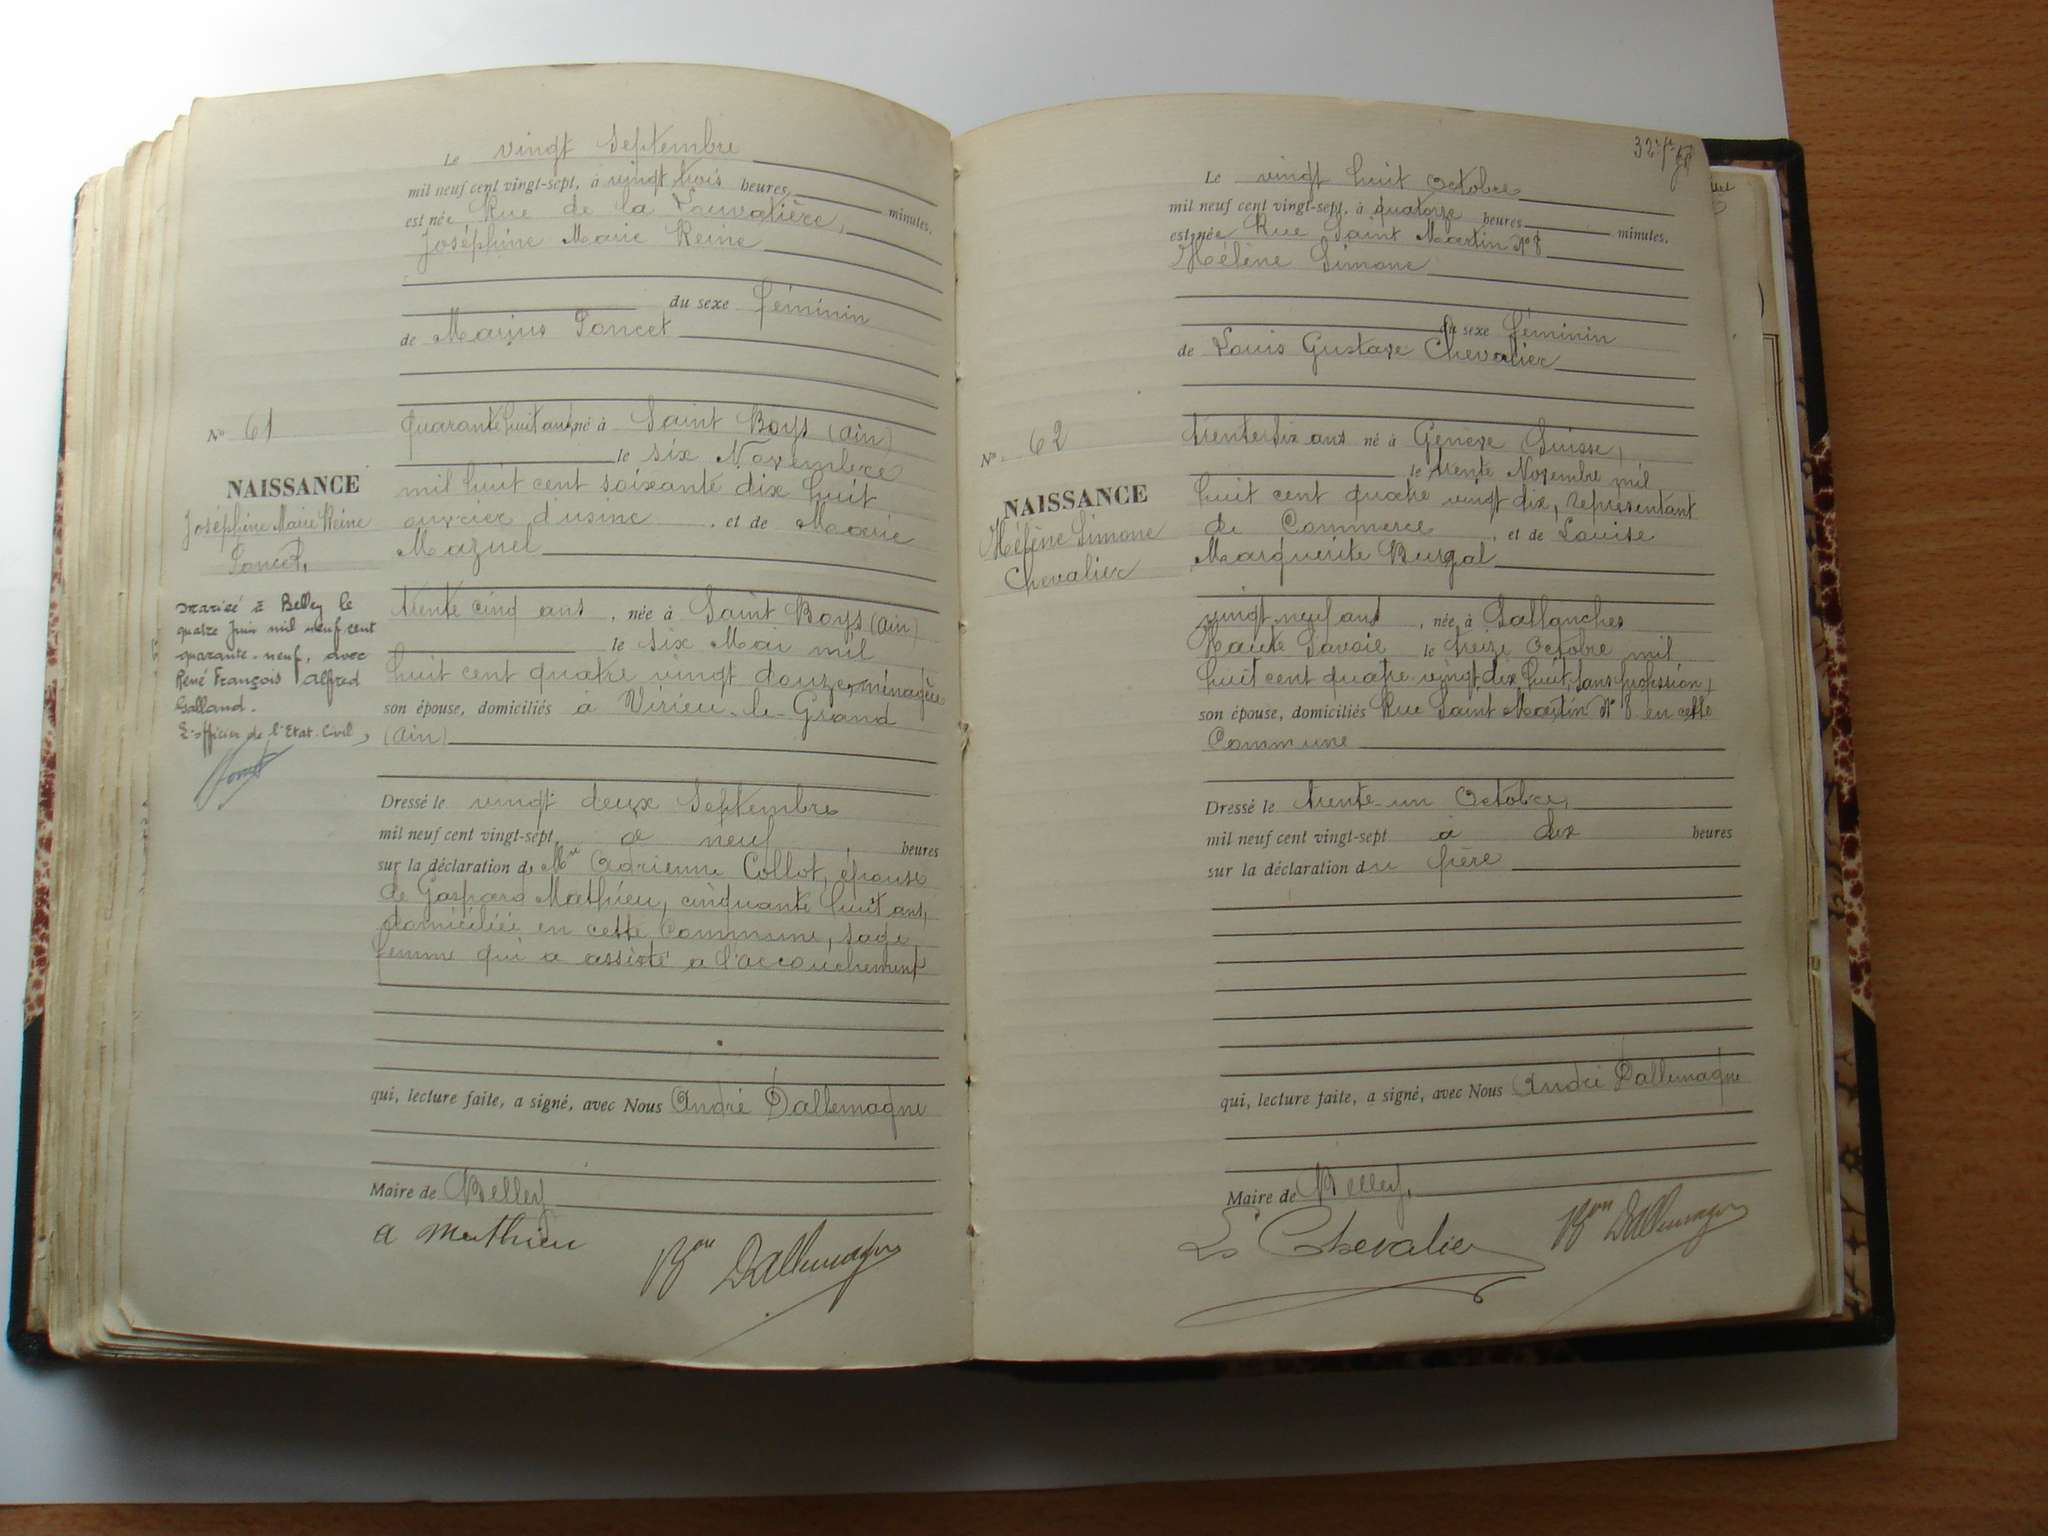 Le vingt Septembre
mil neuf cent vingt-sept, à vingt trois heures, minutes,
est née Rue de la Louvatière,
Joséphine Marie Reine
du sexe féminin
de Marius Poncet
quarante huit ans, né à Saint Boys (Ain)
le six Novembre
mil huit cent soixante dix huit
ouvrier d'usine, et de Marie
Mazuel
trente cinq ans, née à Saint Boys (Ain)
le six Mai mil
huit cent quatre vingt douze, ménagère
son épouse, domiciliés à Virieu-le-Grand
(Ain)
Dressé le vingt deux Septembre
mil neuf cent vingt-sept, à neuf heures
sur la déclaration de Mme Adrienne Collot, épouse
de Gaspard Mathieu, cinquante huit ans,
domiciliée en cette Commune, sage
femme qui a assisté a l'accouchement
qui, lecture faite, a signé, avec Nous André Dallemagne
Maire de Belley
a Mathieu Bon Dallemagne
No 61
NAISSANCE
Joséphine Marie Reine
Poncet,
Mariée à Belley le
quatre Juin mil neuf cent
quarante-neuf, avec
René François Alfred
Galland.
L'officier de l'Etat-Civil,
32
Le vingt huit Octobre
mil neuf cent vingt-sept, à quatorze heures minutes,
est née Rue Saint Martin No 8
Hélène Simone
du sexe féminin
de Louis Gustave Chevalier
trente six ans né à Genève Suisse,
le trente Novembre mil
huit cent quatre vingt dix, représentant
de Commerce, et de Louise
Marguerite Burgal
vingt neuf ans, née à Sallanches
Haute Savoie le treize Octobre mil
huit cent quatre vingt dix huit, sans profession,
son épouse, domiciliés Rue Saint Martin No 8 en cette
Commune
Dressé le trente-un Octobre,
mil neuf cent vingt-sept à dix heures
sur la déclaration du père
qui, lecture faite, a signé, avec Nous André Dallemagne
Maire de Belley,
Ls Chevalier Bon Dallemagne
No 62
NAISSANCE
Hélène Simone
Chevalier